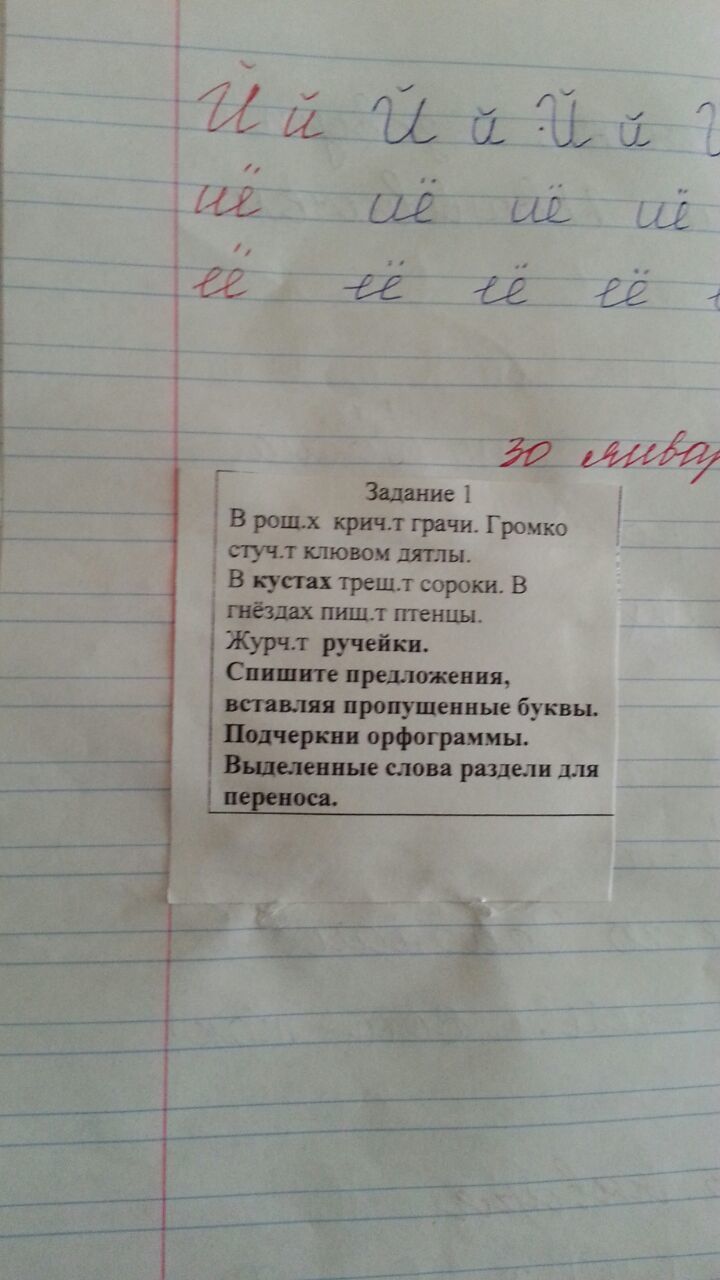 Й й Й й Й й
иё иё иё иё
её её её её
30 январ
Задание 1
В рощ.х крич.т грачи. Громко
стуч.т клювом дятлы.
В кустах трещ.т сороки. В
гнёздах пищ.т птенцы.
Журч.т ручейки.
Спишите предложения,
вставляя пропущенные буквы.
Подчеркни орфограммы.
Выделенные слова раздели для
переноса.